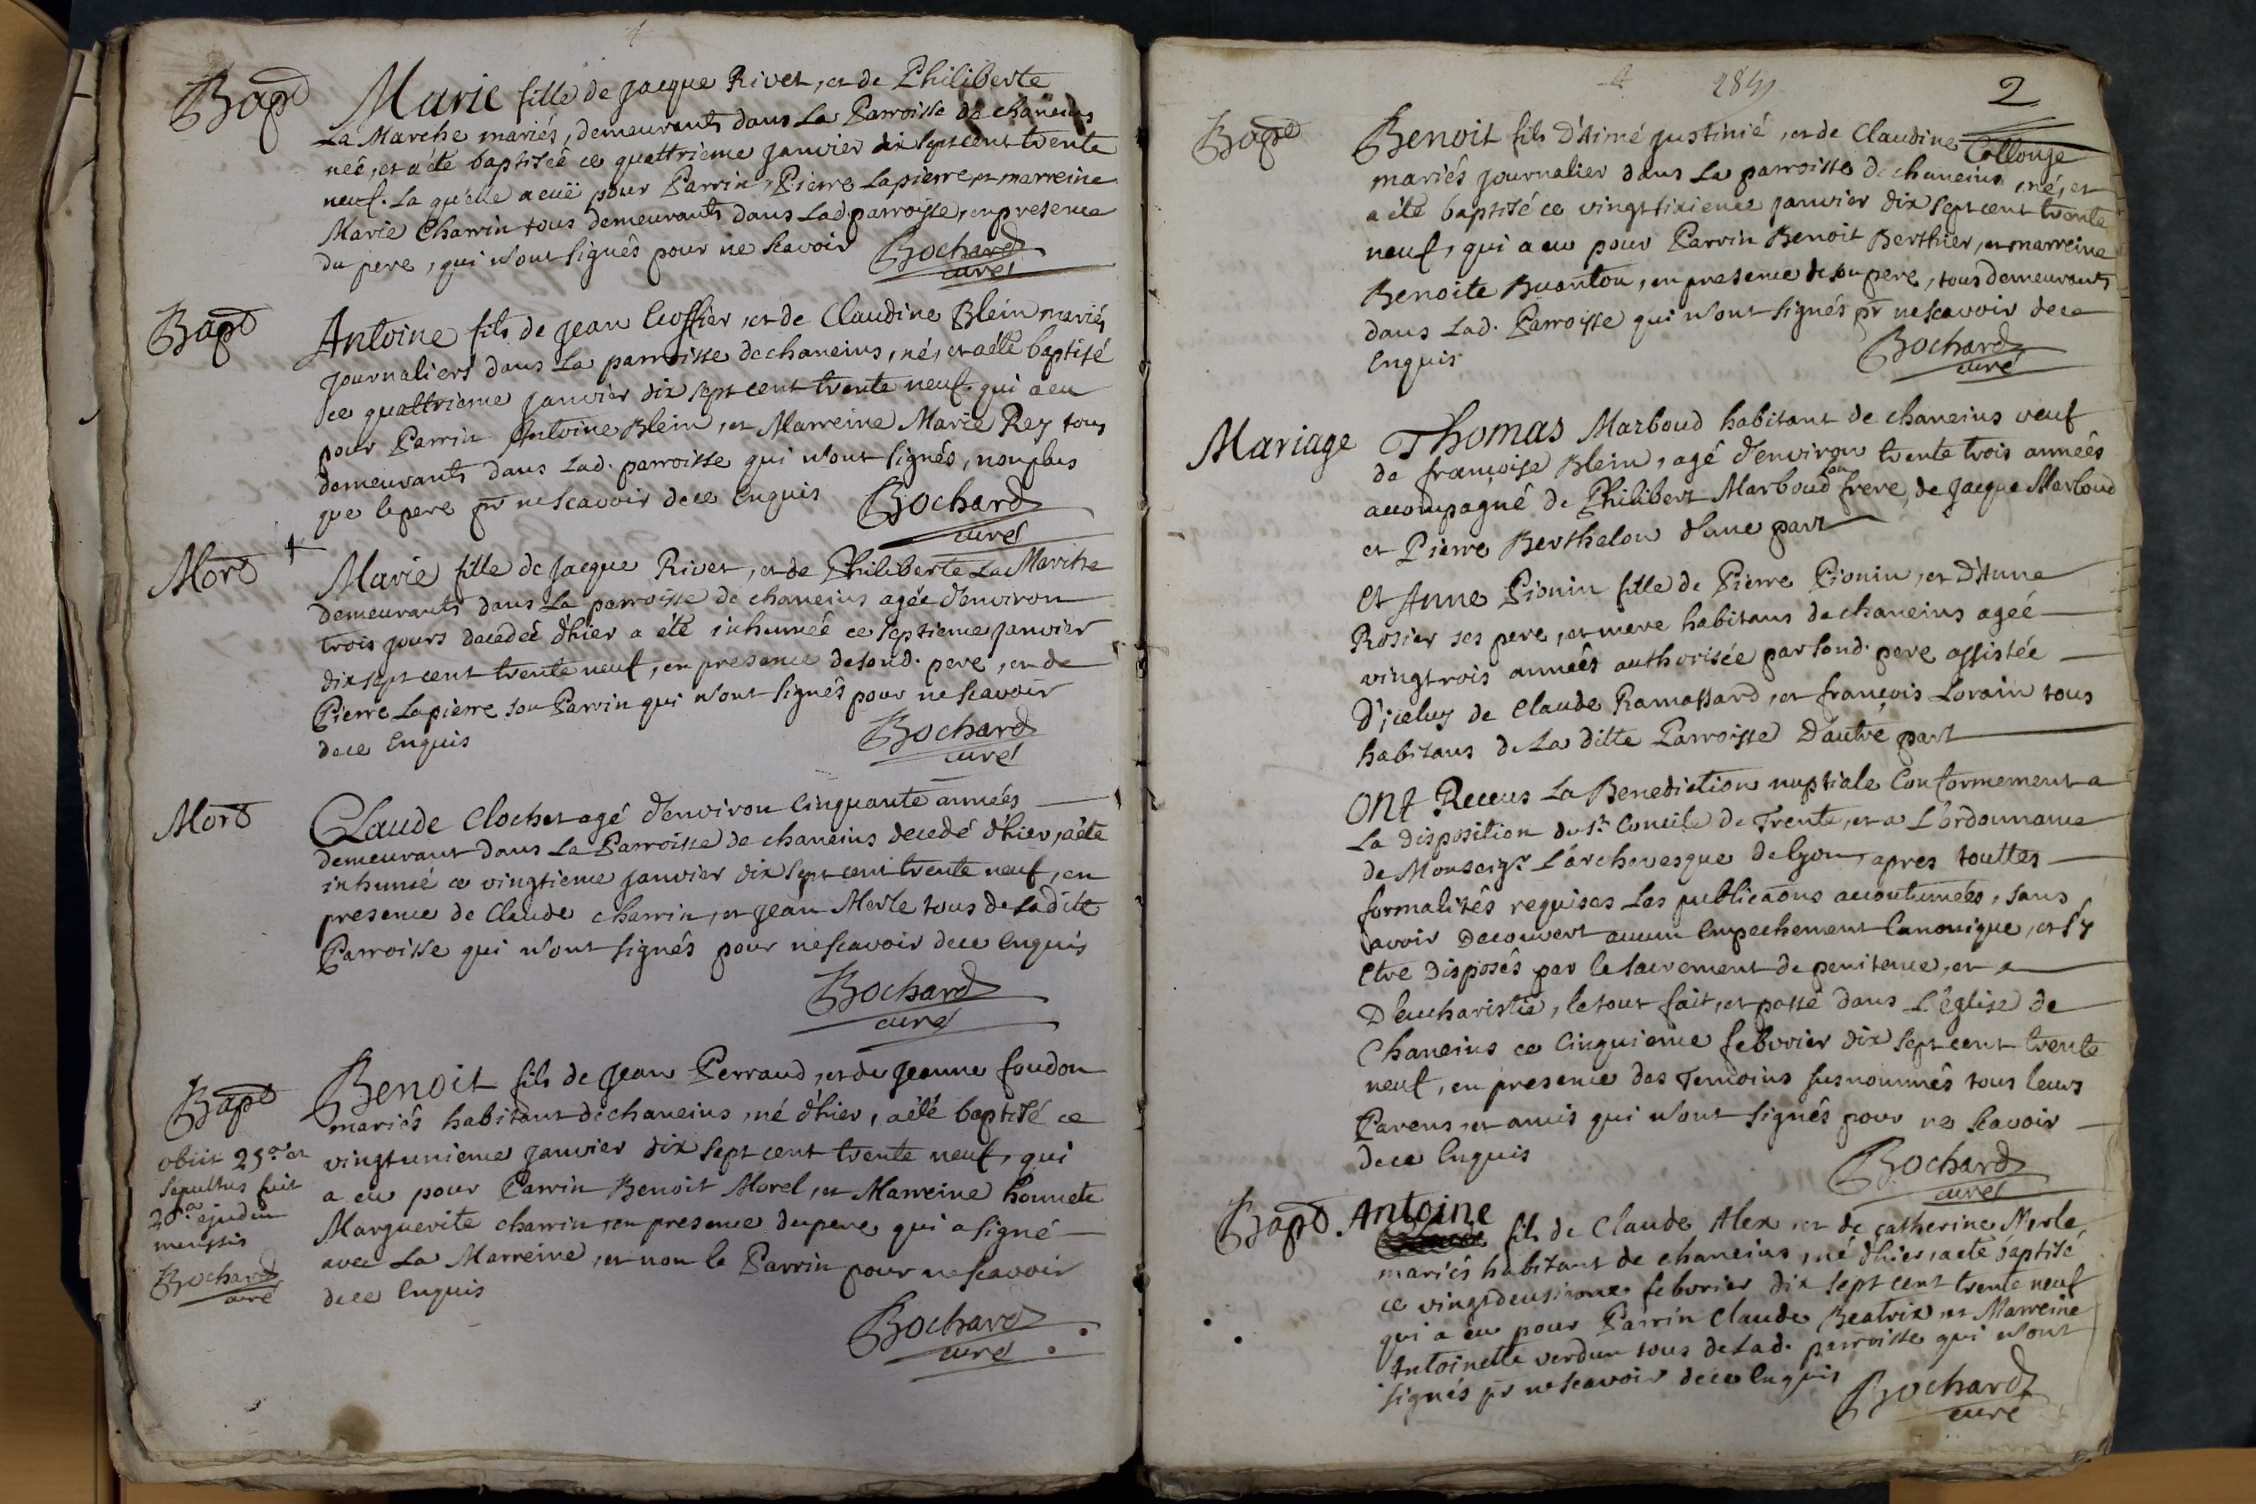 Bapt
Marie fille de jacque Rivet, et de Philiberte
La Marche mariés, demeurants dans La Parroisse de chaneins
néé, et a été baptiséé ce quattrieme janvier dix sept cent trente
neuf. La qu'elle a euë pour Parrin, Pierre Lapierre, et marreine
Marie Charrin tous demeurants dans Lad. parroisse, en presence
du pere, qui n'ont signés pour ne scavoir
Bochard
curé
Bapt
Antoine fils de jean Coffier, et de Claudine Blein mariés
journaliers dans La parroisse de chaneins, né, et a été baptisé
ce quattrieme janvier dix sept cent trente neuf. qui a eu
pour Parrin Antoine Blein, et Marreine Marie Rey tous
demeurants dans Lad. parroisse qui n'ont signés, non plus
que le pere pr ne scavoir de ce Enquis
Bochard
curé
Mort +
Marie fille de jacque Rivet, et de Philiberte La Marche
demeurants dans La parroisse de chaneins agée d'environ
trois jours decedeé d'hier a été inhumeé ce septieme janvier
dix sept cent trente neuf, en presence de sond. pere, et de
Pierre Lapierre son Parrin qui n'ont signés pour ne scavoir
de ce Enquis
Bochard
curé
Mort
Claude Clochet agé d'environ Cinquante années
demeurant dans La Parroisse de chaneins decedé d'hier, a été
inhumé ce vingtieme janvier dix sept cent trente neuf, en
presence de Claude charrin, et jean Merle tous de Ladite
Parroisse qui n'ont signés pour ne scavoir de ce Enquis
Bochard
curé
Bapt
obiit 25a et
sepultus fuit
26a ejusdem
menssis
Bochard
curé
Benoit fils de jean Perraud, et de jeanne foudon
mariés habitant de chaneins, né d'hier, a été baptisé ce
vingtunieme janvier dix sept cent trente neuf, qui
a eu pour Parrin Benoit Morel, et Marreine honnete
Marguerite charrin, en presence du pere qui a signé
avec La Marreine, et non le Parrin pour ne scavoir
de ce Enquis
Bochard
curé
2
Bapt
Benoit fils D'Aimé justinié, et de Claudine Collonge
mariés journalier dans La parroisse de chaneins, né, et
a été baptisé ce vingt sixieme janvier dix sept cent trente
neuf, qui a eu pour Parrin Benoit Berthier, et marreine
Benoite Buanton, en presence de son pere, tous demeurants
dans Lad. Parroisse qui n'ont signés pr ne scavoir de ce
Enquis
Bochard
curé
Mariage
Thomas Marboud habitant de chaneins veuf
de francoise Blein, agé d'environ trente trois années
accompagné de Philibert Marboud son frere, de jacque Marboud
et Pierre Berthelon d'une part
Et Anne Pionin fille de Pierre Pionin, et D'Anne
Rosier ses pere, et mere habitans de chaneins ageé
vingt trois annéés authorisée par sond. pere assistée
D'iceluy de Claude Ramassard, et françois Lorain tous
habitans de La ditte Parroisse D'autre part
Ont Receus La Benediction nuptiale Conformement a
La disposition du St Concile de Trente, et a L'ordonnance
de Monseigr L'archevesque de lyon, apres touttes
formalités requises Les publicaons accoutumeés, sans
avoir Decouvert aucun Empechement Canonique, et s'y
Etre Disposés par le sacrement de penitence, et
D'eucharistie, le tout fait, et passé dans L'église de
Chaneins ce Cinquieme febvrier dix sept cent trente
neuf, en presence des Temoins susnommés tous leurs
Parens, et amis qui n'ont signés pour ne scavoir
de ce Enquis
Bochard
curé
Bapt.
Antoine
fils de Claude Alex, et de catherine Merle
mariés habitant de chaneins, né d'hier, a été baptisé
ce vingtdeusieme febvrier dix sept cent trente neuf
qui a eu pour Parrin Claude Beatrix et Marreine
Antoinette verdun tous de Lad. parroisse qui n'ont
signés pr ne scavoir de ce Enquis
Bochard
curé